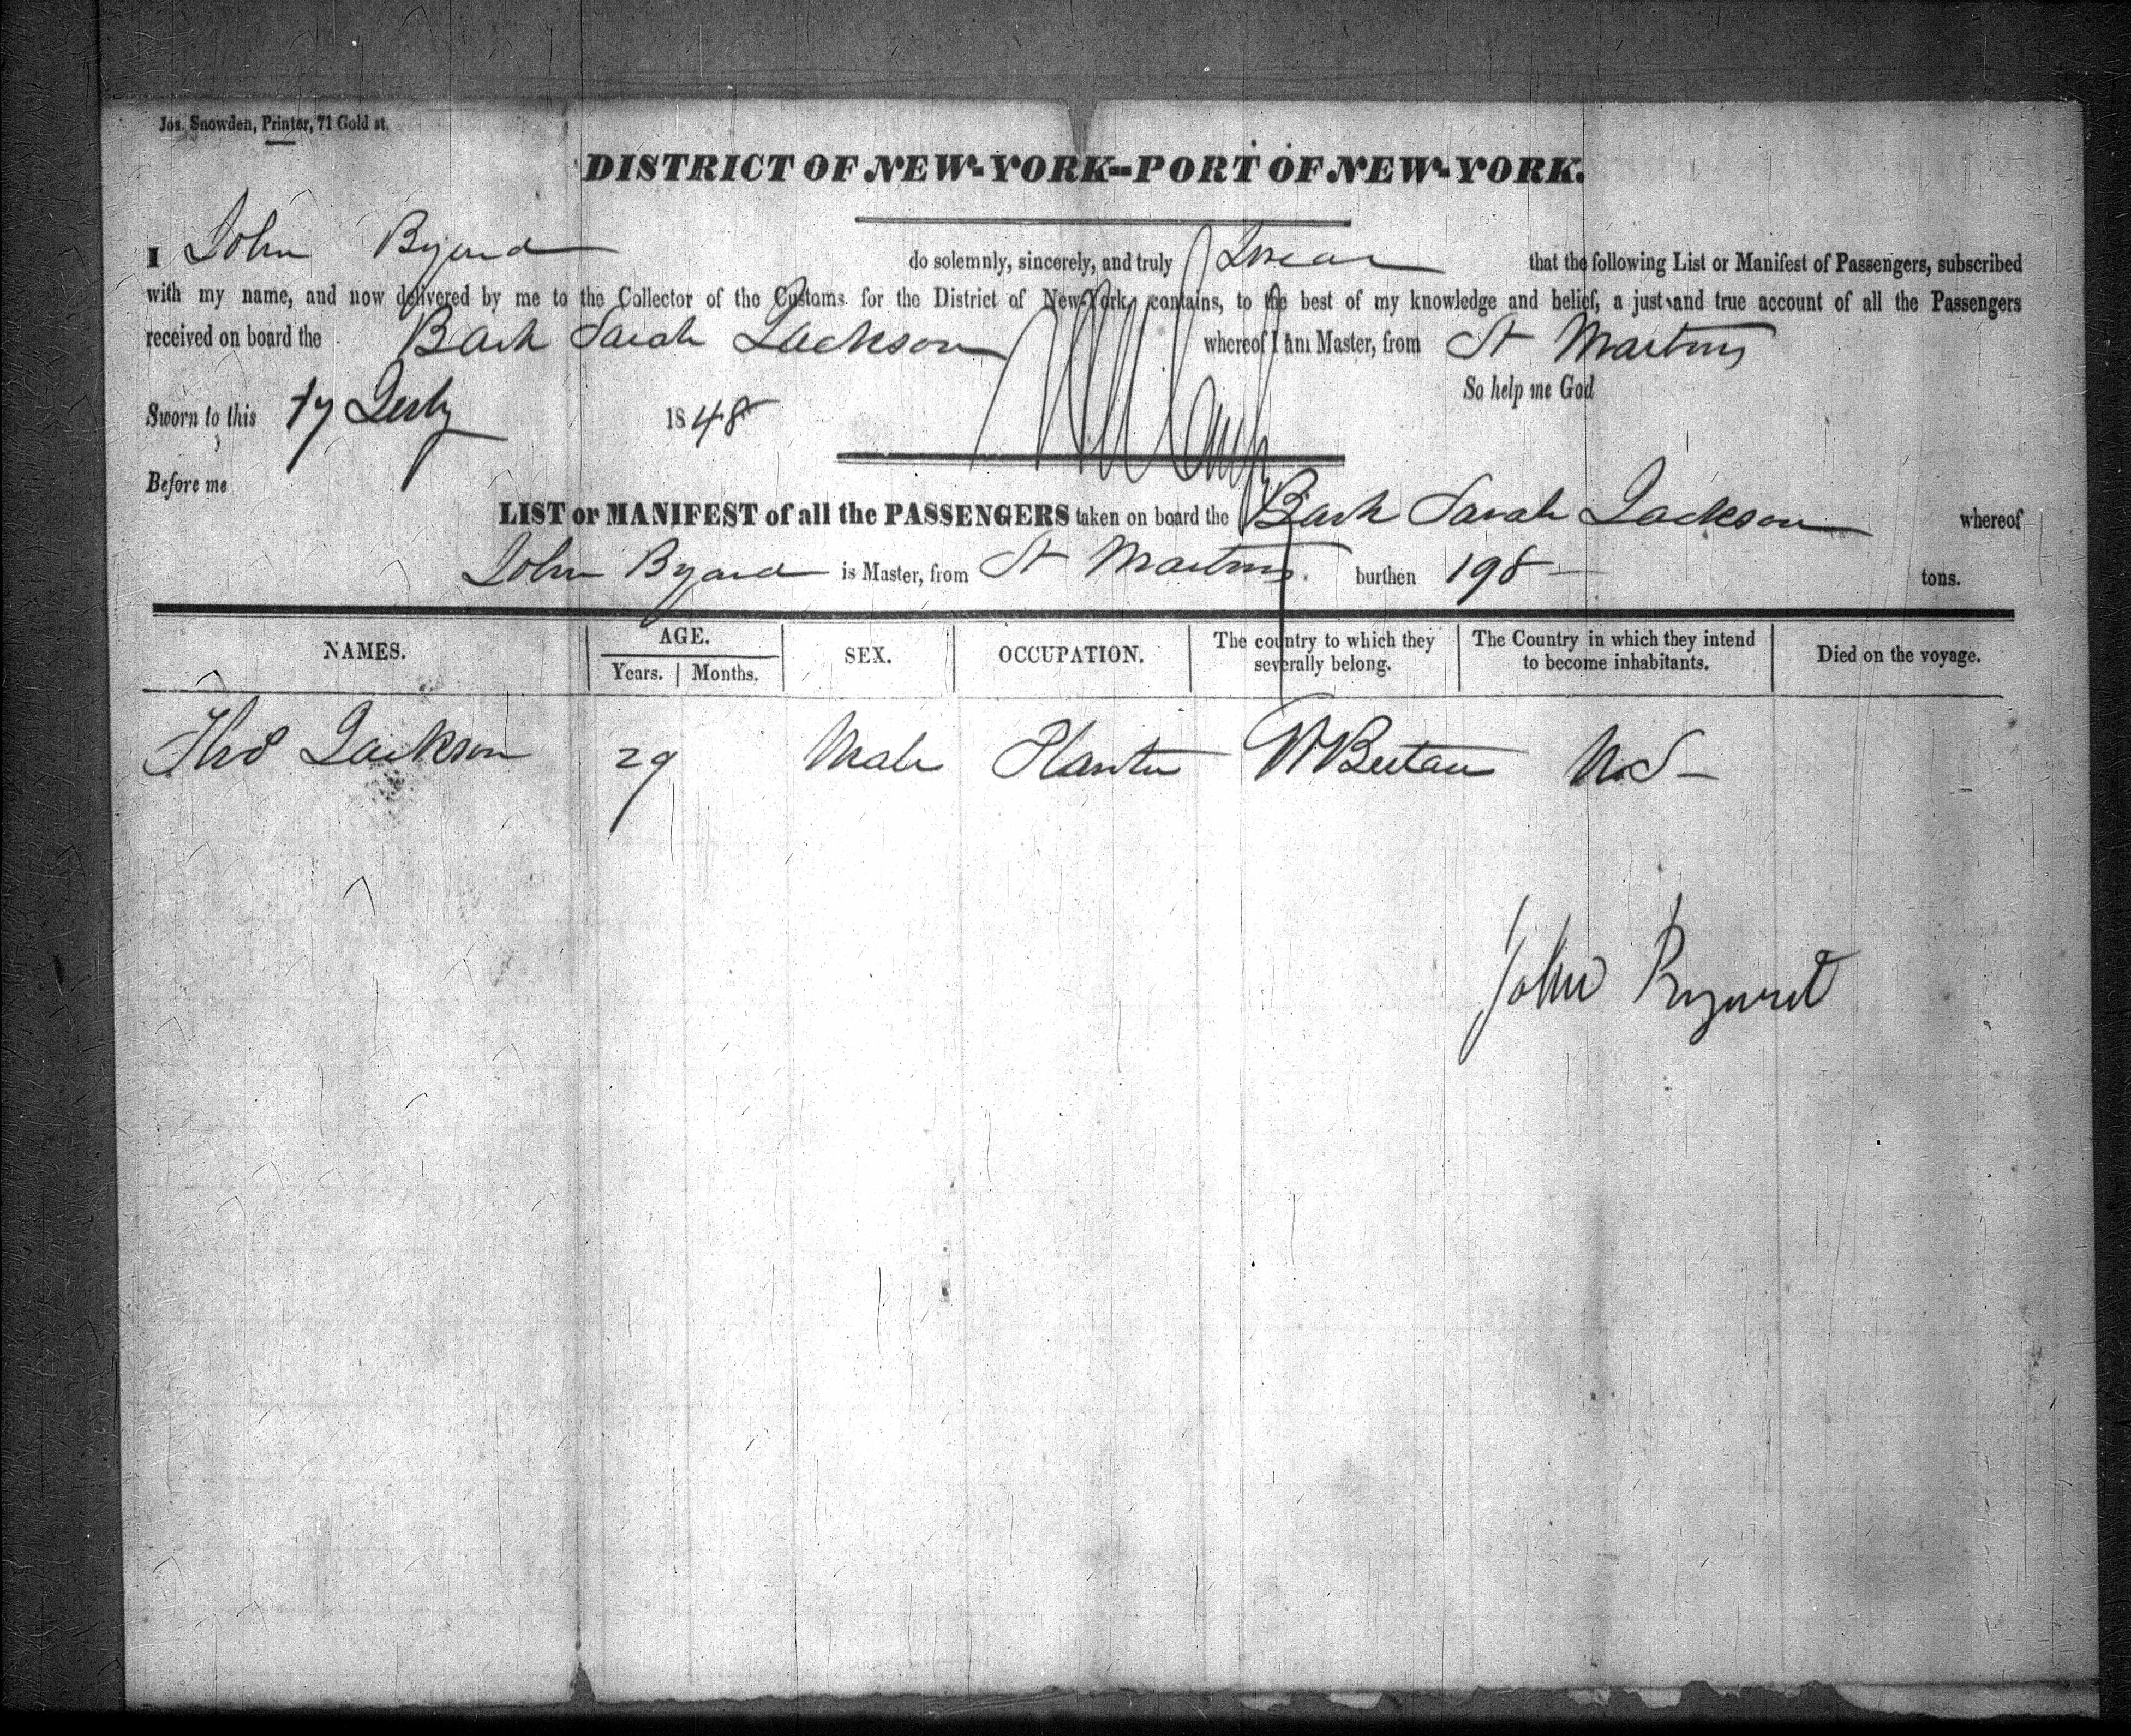 Jos. Snowden, Printer, 71 Gold st.
DISTRICT OF NEW-YORK--PORT OF NEW-YORK.
I John Byard do solemnly, sincerely, and truly Swear that the following List or Manifest of Passengers, subscribed
with my name, and now delivered by me to the Collector of the Customs for the District of New-York, contains, to the best of my knowledge and belief, a just and true account of all the Passengers
received on board the Bark Sarah Jackson whereof I am Master, from St Martins
So help me God
Sworn to this 1848
Before me
LIST or MANIFEST of all the PASSENGERS taken on board the Bark Sarah Jackson whereof
John Byard is Master, from St Martins. burthen 198 tons.
NAMES. AGE. SEX. OCCUPATION. The country to which they severally belong. The Country in which they intend to become inhabitants. Died on the voyage.
Years. Months.
Thos Jackson 29 Male Planter
John Byard